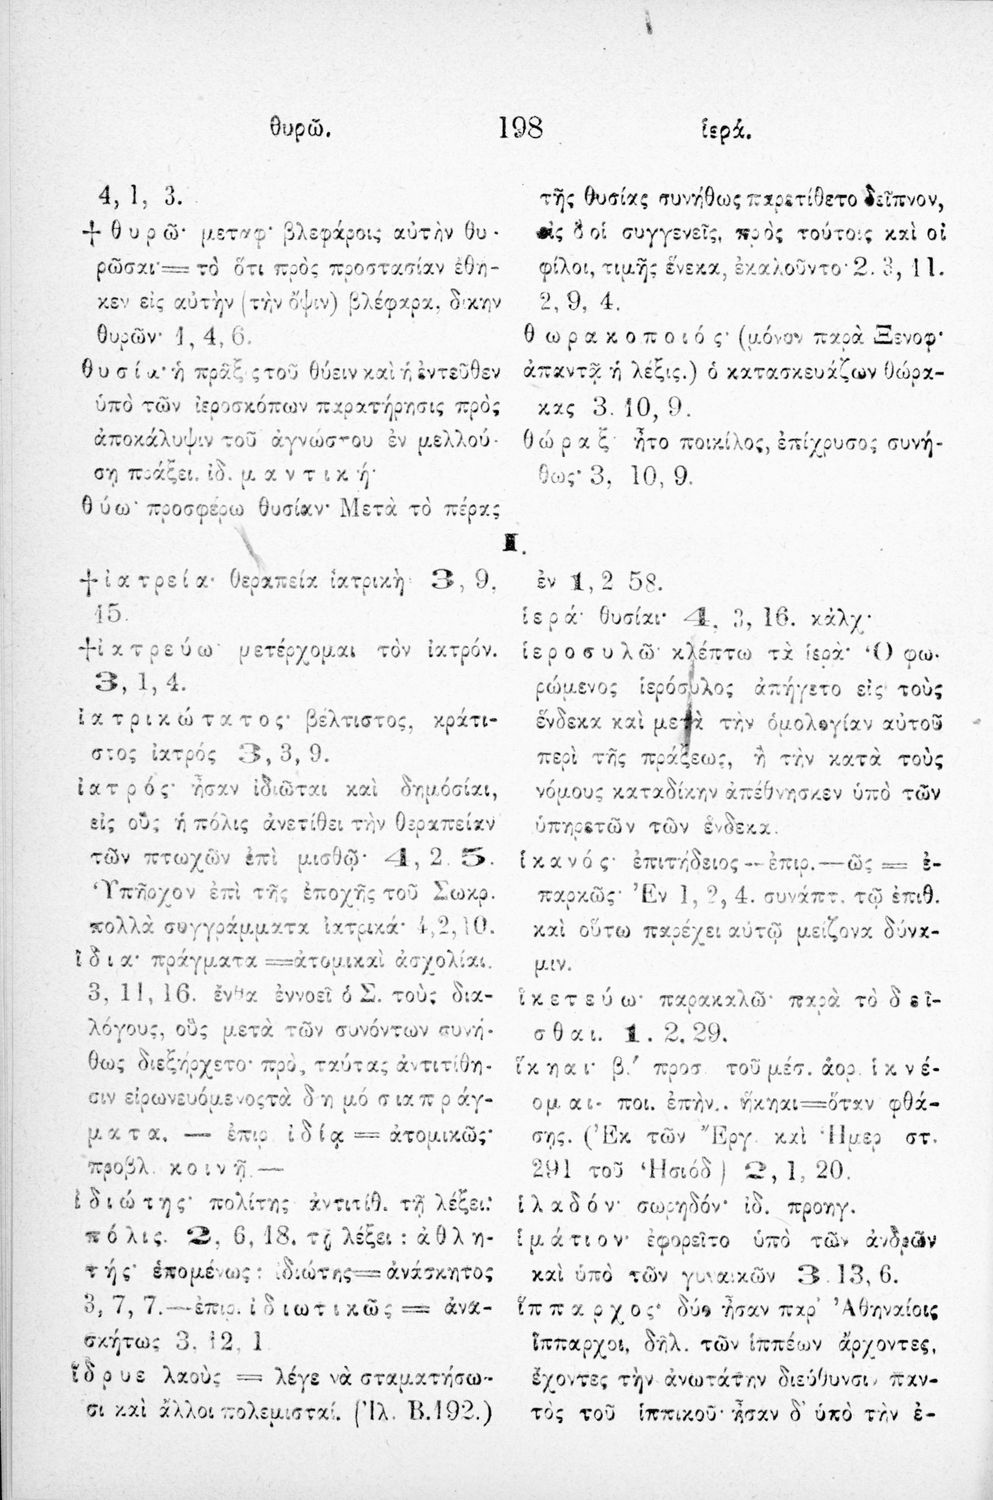 θυρῶ. 198 ἱερά.
4, 1, 3.
†θυρῶ· μεταφ· βλεφάροις αὐτὴν θυ-
ρῶσαι·== τὸ ὅτι πρὸς προστασίαν ἔθη-
κεν εἰς αὐτὴν (τὴν ὄψιν) βλέφαρα, δίκην
θυρῶν· 1, 4, 6.
θυσία· ἡ πρᾶξις τοῦ θύειν καὶ ἡ ἐντεῦθεν
ὑπὸ τῶν ἱεροσκόπων παρατήρησις πρὸς
ἀποκάλυψιν τοῦ ἀγνώστου ἐν μελλού-
ση πράξει. ἰδ. μαντική·
θύω· προσφέρω θυσίαν· Μετὰ τὸ πέρας
τῆς θυσίας συνήθως παρετίθετο δεῖπνον,
εἰς ὃ οἱ συγγενεῖς, πρὸς τούτοις καὶ οἱ
φίλοι, τιμῆς ἕνεκα, ἐκαλοῦντο· 2. 3, 11.
2, 9, 4.
θωρακοποιός· (μόνον παρὰ Ξενοφ·
ἀπαντᾷ ἡ λέξις.) ὁ κατασκευάζων θώρα-
κας 3. 10, 9.
θώραξ· ἦτο ποικίλος, ἐπίχρυσος συνή-
θως· 3, 10, 9.
Ι.
†ἰατρεία· θεραπεία ἰατρικὴ· 3, 9,
15.
†ἰατρεύω· μετέρχομαι τὸν ἰατρόν.
3, 1, 4.
ἰατρικώτατος· βέλτιστος, κράτι-
στος ἰατρός 3, 3, 9.
ἰατρός· ἦσαν ἰδιῶται καὶ δημόσίαι,
εἰς οὓς ἡ πόλις ἀνετίθει τὴν θεραπείαν
τῶν πτωχῶν ἐπὶ μισθῷ· 4, 2. 5.
Ὑπῆρχον ἐπὶ τῆς ἐποχῆς τοῦ Σωκρ.
πολλὰ συγγράμματα ἰατρικά· 4,2,10.
ἴδια· πράγματα ==ἀτομικαὶ ἀσχολίαι.
3, 11, 16. ἔνθα ἐννοεῖ ὁ Σ. τοὺς δια-
λόγους, οὓς μετὰ τῶν συνόντων συνή-
θως διεξήρχετο· πρὸς ταύτας ἀντιτίθη-
σιν εἰρωνευόμενος τὰ δημόσια πράγ-
ματα. — ἐπιρ ἰδίᾳ == ἀτομικῶς·
προβλ. κοινῇ. —
ἰδιώτης· πολίτης ἀντιτίθ. τῇ λέξει:
πόλις. 2, 6, 18. τῇ λέξει : ἀθλη-
τής· ἑπομένως : ἰδιώτης== ἀνάσκητος
3, 7, 7.—ἐπιρ. ἰδιωτικῶς == ἀνα-
σκήτως 3. 12, 1
ἵδρυε λαοὺς == λέγε νὰ σταματήσω-
σι καὶ ἄλλοι πολεμισταί. (Ἰλ. Β.192.)
ἐν 1, 2 58.
ἱερά· θυσίαι· 4, 3, 16. κἀλχ·
ἱεροσυλῶ· κλέπτω τὰ ἱερὰ· Ὁ φω-
ρώμενος ἱερόσυλος ἀπήγετο εἰς τοὺς
ἕνδεκα καὶ μετὰ τὴν ὁμολογίαν αὐτοῦ
περὶ τῆς πράξεως, ἢ τὴν κατὰ τοὺς
νόμους καταδίκην ἀπέθνησκεν ὑπὸ τῶν
ὑπηρετῶν τῶν ἕνδεκα.
ἱκανός· ἐπιτήδειος—ἐπιρ.—ῶς == ἐ-
παρκῶς· Ἐν 1, 2, 4. συνάπτ. τῷ ἐπιθ.
καὶ οὕτω παρέχει αὐτῷ μείζονα δύνα-
μιν.
ἱκετεύω· παρακαλῶ· παρὰ τὸ δεῖ-
σθαι. 1. 2. 29.
ἵκηαι· β.΄ προσ. τοῦ μέσ. ἀορ. ἱκνέ-
ομαι· ποι. ἐπὴν.. ἵκηαι==ὅταν φθά-
σῃς. (Ἐκ τῶν Ἔργ. καὶ Ἡμερ στ.
291 τοῦ Ἡσιόδ) 2, 1, 20.
ἰλαδόν· σωρηδόν· ἰδ. προηγ.
ἱμάτιον· ἐφορεῖτο ὑπὸ τῶν ἀνδρῶν
καὶ ὑπὸ τῶν γυναικῶν 3. 13, 6.
ἵππαρχος· δύο ἦσαν παρ᾽ Ἀθηναίοις
ἵππαρχοι, δηλ. τῶν ἱππέων ἄρχοντες,
ἔχοντες τὴν ἀνωτάτην διεύθυνσιν παν-
τὸς τοῦ ἱππικοῦ· ἦσαν δ᾽ ὑπὸ τὴν ἐ-